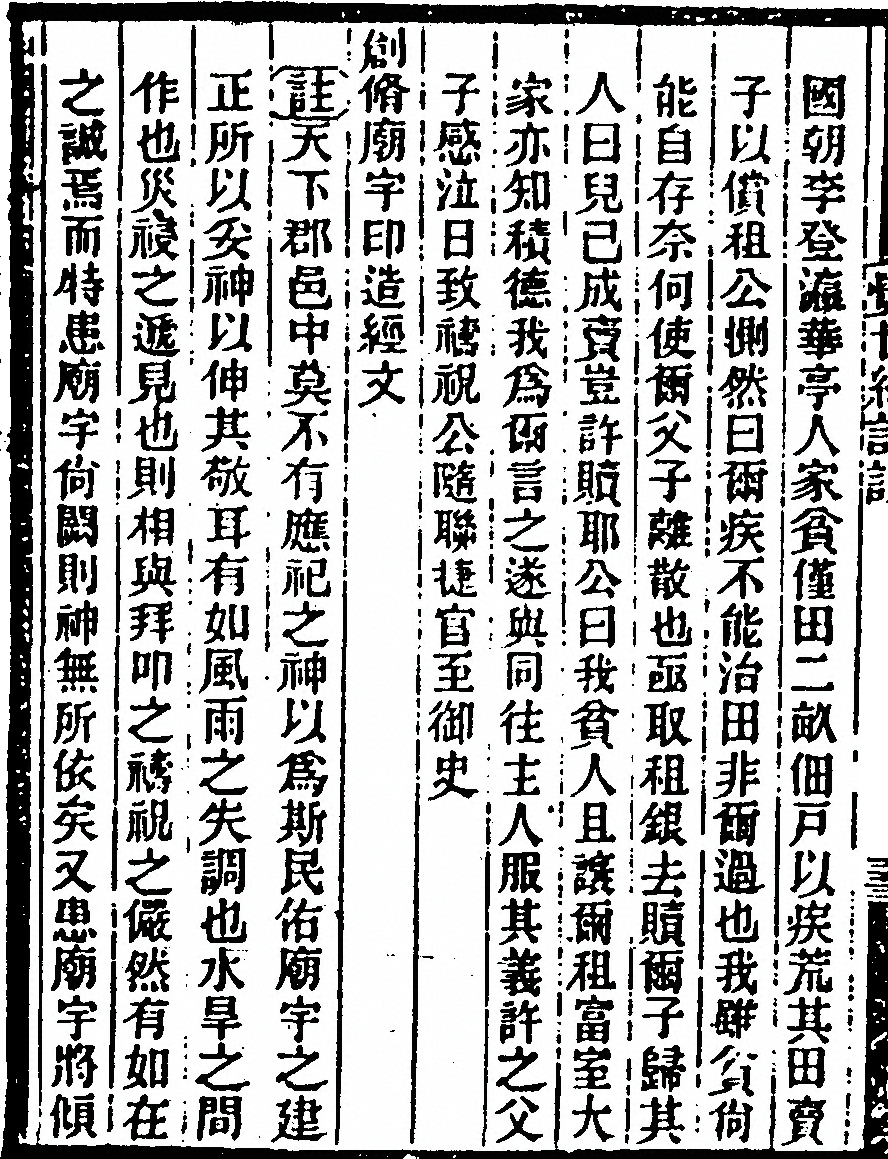 覺世經註證
國朝李登瀛華亭人家貧僅田二畝佃戶以疾荒其田賣
子以償租公惻然曰爾疾不能治田非爾過也我雖貧尙
能自存奈何使爾父子離散也亟取租銀去贖爾子歸其
人曰兒已成賣豈許贖耶公曰我貧人且讓爾租富室大
家亦知積德我爲爾言之遂與同往主人服其義許之父
子感泣日致禱祝公隨聯捷官至御史
創脩廟宇印造經文
註天下郡邑中莫不有應祀之神以爲斯民佑廟宇之建
正所以妥神以伸其敬耳有如風雨之失調也水旱之間
作也災祲之遞見也則相與拜叩之禱祝之儼然有如在
之誠焉而特患廟宇尙闕則神無所依矣又患廟宇將傾